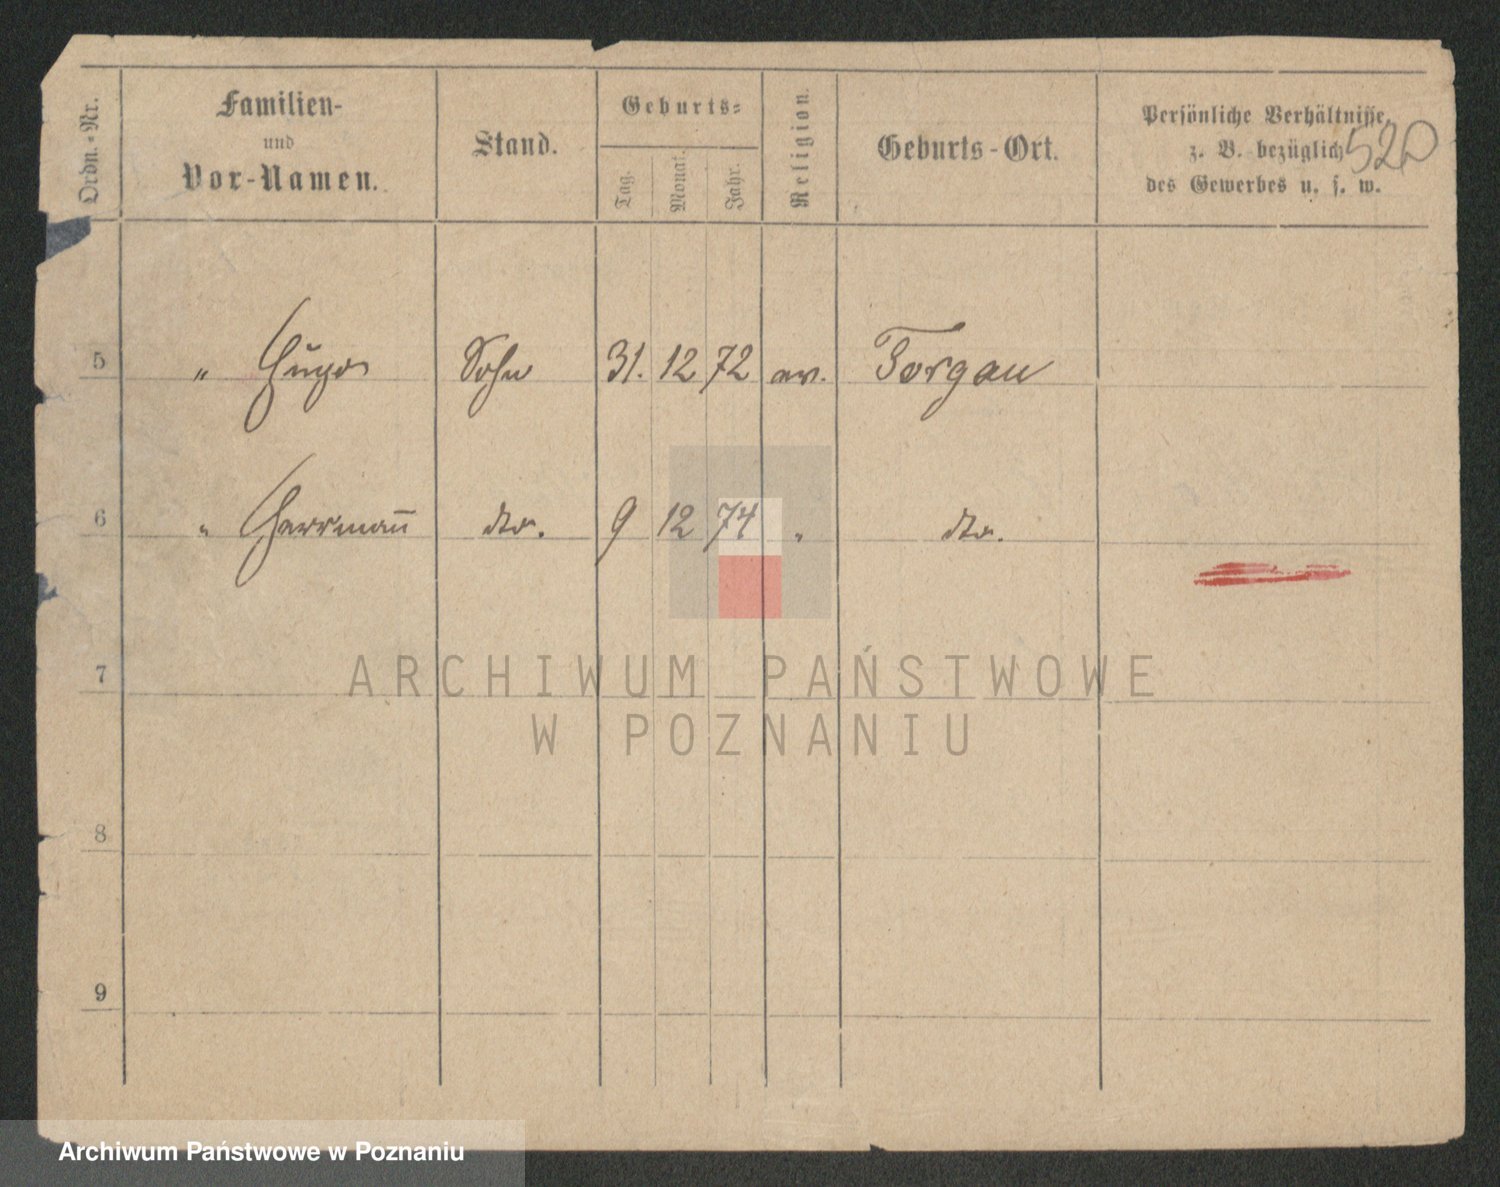 Ordn.-Nr.
Familien-
und
Vor-Namen.
Stand.
Geburts-
Tag.
Monat.
Jahr.
Religion.
Geburts-Ort.
Persönliche Verhältnisse,
z. B. bezüglich
des Gewerbes u. s. w.
520
5 " Hugo Sohn 31. 12 72 ev. Torgau
6 " Herrmann dto. 9 12 74 " dto.
7
8
9
ARCHIWUM PAŃSTWOWE
W POZNANIU
Archiwum Państwowe w Poznaniu